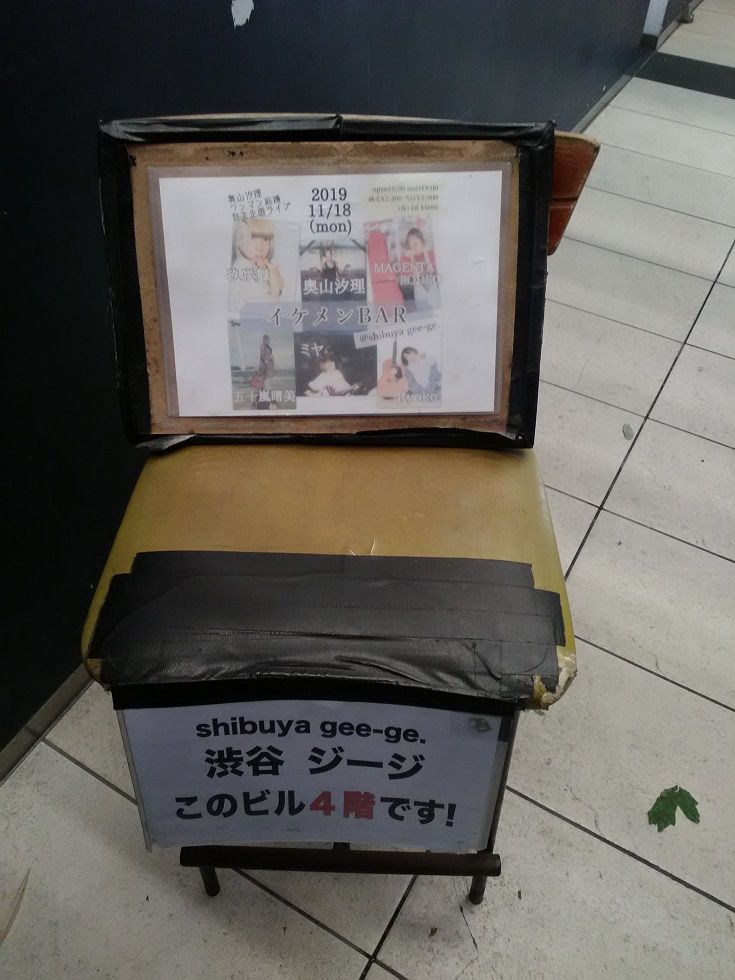 奥山汐理
ワンマン応援
自主企画ライブ
2019
11/18
(mon)
open18:30 start19:00
(各+1d ¥600)
奥山汐理
MAGENTA
RODEO
イケメンBAR
@shibuya gee-ge.
五十嵐晴美
ミヤ
Ryoko
shibuya gee-ge.
渋谷 ジージ
このビル4階です!